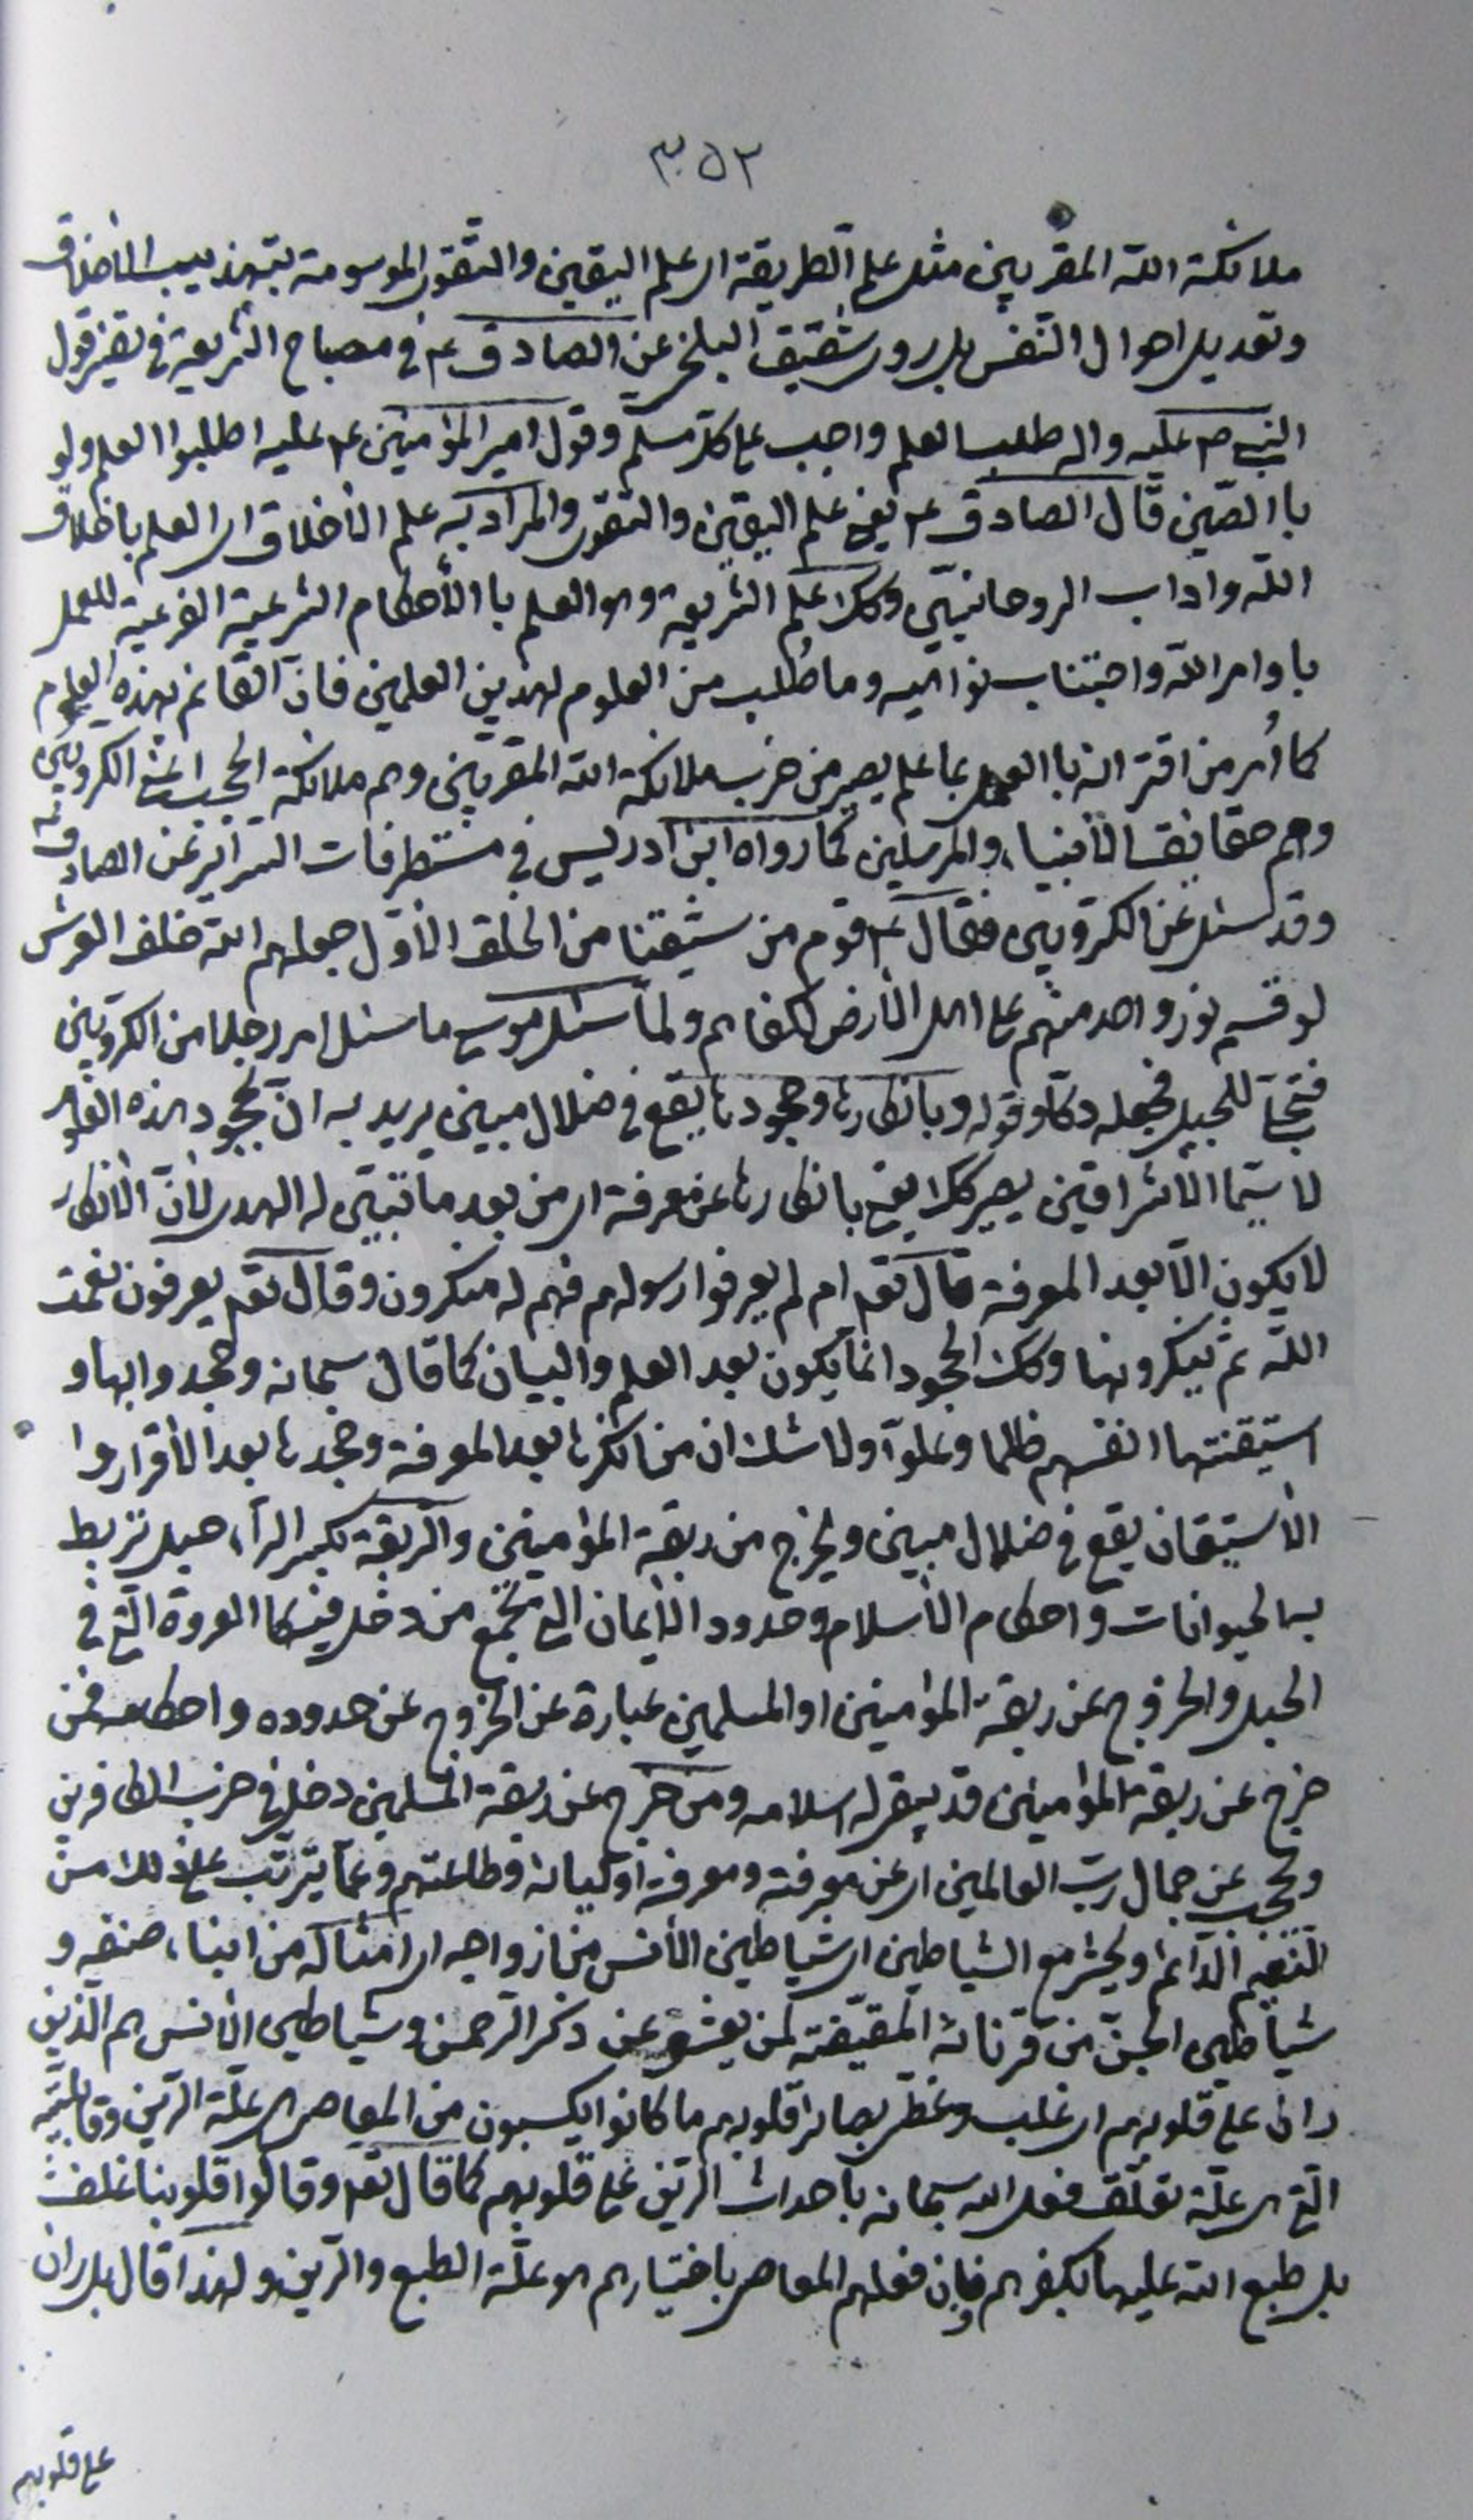 ٣٥٢
ملائكة الله المقربين مثل علم الطريقة اى علم اليقين والتقوى الموسومة بتهذيب الأخلاق
وتعديل احوال النفس بل روى شقيق البلخى عن الصادق ع في مصباح الشريعة في تفسير قول
النبى ص عليه واله طلب العلم واجب على كل مسلم وقول امير المؤمنين ع عليه اطلبوا العلم ولو
باالصّين قال الصادق ع يعنى علم اليقين والتقوى والمراد به علم الأخلاق اى العلم باخلاق
الله واداب الروحانيّين وكك علم الشريعة وهو العلم باالأحكام الشرعية الفرعية للعمل
باوامر الله واجتناب نواهيه وما طُلب من العلوم لهذين العلمين فانّ القائم بهذه العلوم
كما اُمر من اقترانه باالعمل بما علم يصير من حزب ملائكة الله المقربين وهم ملائكة الحجب اعنى الكروبيين
وهم حقايق الأنبياء والمرسلين كما رواه ابن ادريس في مستطرفات السرائر عن الصادق ع
وقد سئل عن الكروبيين فقال ع قوم من شيعتنا من الخلق الأول جعلهم الله خلف العرش
لو قسم نور واحد منهم على اهل الأرض لكفاهم ولمّا سئل موسى ما سئل امر رجلا من الكروبيين
فتجلّى للجبل فجعله دكّا وقوله وبانكارها وجحودها يقع في ضلال مبين يريد به انّ بجحود هذه العلوم
لا سيّما الأشراقين يصير كك يعنى بانكارها عن معرفة اى من بعد ما تبيّن له الهدى لأنّ الأنكار
لا يكون الّا بعد المعرفة قال تعم ام لم يعرفوا رسولهم فهم له منكرون وقال تعم يعرفون نعمت
الله ثم ينكرونها وكك الجحود انما يكون بعد العلم والبيان كما قال سبحانه وجحدوا بها و
استيقنتها انفسهم ظلما وعلوّا ولا شك ان من انكرها بعد المعرفة وجحدها بعد الأقرار وا
الأستيقان يقع في ضلال مبين ويخرج من ربقة المؤمنين والربقة بكسر الراء حبل تربط
به الحيوانات واحكام الأسلام وحدود الأيمان التى تجمع من دخل فيها كا العروة التى في
الحبل والخروج عن ربقة المؤمنين او المسلمين عبارة عن الخروج عن حدوده واحكامه فمن
خرج عن ربقة المؤمنين قد يبقى له اسلامه ومن خرج عن ربقة المسلمين دخل في حزب الكافرين
وحجب عن جمال ربّ العالمين اى عن معرفته ومعرفة اوليائه وطاعتهم وعمّا يترتّب على ذلك من
النعيم الدّائم ويحشر مع الشياطين اى شياطين الأنس من ازواجه اى امثاله من ابناء صنفه و
شياطين الجنّ من قرنائه المقيّضة لمن يعشو عن ذكر الرّحمن وشياطين الأنس هم الّذين
ران على قلوبهم اى غلب وغطّى بصائر قلوبهم ما كانوا يكسبون من المعاصى هى علّة الرّين وقابليّته
الّتى هى علّة تعلّق فعل الله سبحانه باحداث الرّين على قلوبهم كما قال تعم وقالوا قلوبنا غلف
بل طبع الله عليها بكفرهم فإن فعلهم المعاصى باختيارهم هو علّة الطبع والرّين ولهذا قال بل ران
على قلوبهم